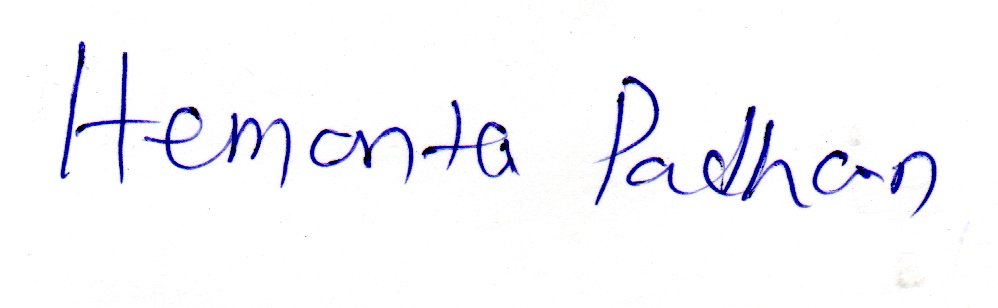 Hemanta Padhan